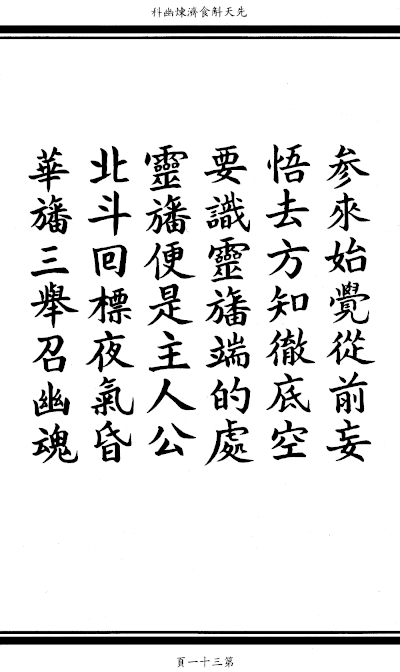 先天斛食濟煉幽科
參來始覺從前妄
悟去方知徹底空
要識靈旛端的處
靈旛便是主人公
北斗回標夜氣昏
華旛三舉召幽魂
第三十一頁